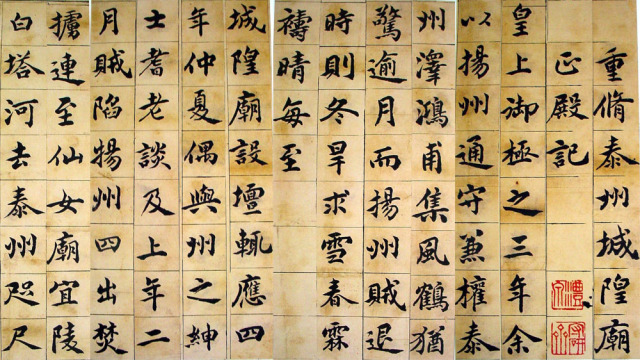 重脩泰州城隍廟
正殿記
皇上御極之三年余
以揚州通守兼權泰
州澤鴻甫集風鶴猶
驚逾月而揚州賊退
時則冬旱求雪春霖
禱晴每至
城隍廟設壇輒應四
年仲夏偶與州之紳
士耆老談及上年二
月賊陷揚州四出焚
擄連至仙女廟宜陵
白塔河去泰州咫尺